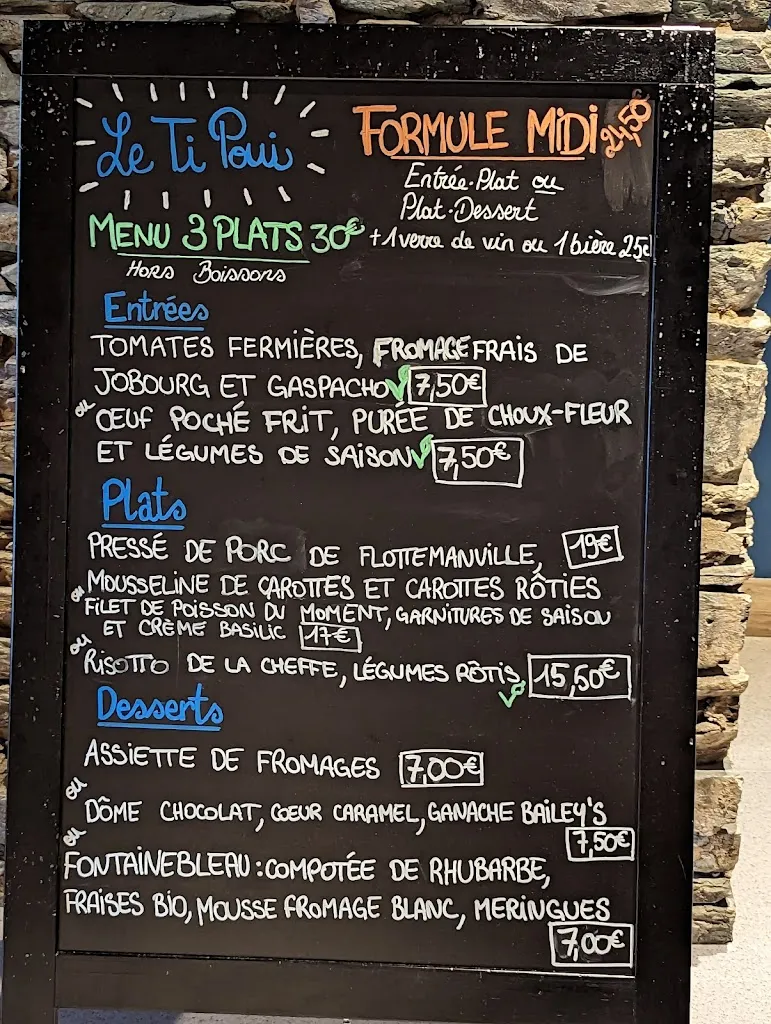 Le Ti Poui
FORMULE MIDI 24,50
Entrée-Plat ou
Plat-Dessert
MENU 3 PLATS 30€
+ 1 verre de vin ou 1 bière 25€
HORS BOISSONS
Entrées
TOMATES FERMIÈRES, FROMAGE FRAIS DE
JOBOURG ET GASPACHO 7,50€
ou
ŒUF POCHÉ FRIT, PURÉE DE CHOUX-FLEUR
ET LÉGUMES DE SAISON 7,50€
Plats
PRESSÉ DE PORC DE FLOTTEMANVILLE, 19€
MOUSSELINE DE CAROTTES ET CAROTTES RÔTIES
ou
FILET DE POISSON DU MOMENT, GARNITURES DE SAISON
ET CRÈME BASILIC 17€
ou
RISOTTO DE LA CHEFFE, LÉGUMES RÔTIS 15,50€
Desserts
ASSIETTE DE FROMAGES 7,00€
ou
DÔME CHOCOLAT, CŒUR CARAMEL, GANACHE BAILEY'S
7,50€
ou
FONTAINEBLEAU : COMPOTÉE DE RHUBARBE,
FRAISES BIO, MOUSSE FROMAGE BLANC, MERINGUES
7,00€